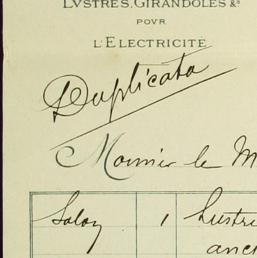 LVSTRES, GIRANDOLES &a
POVR
L'ELECTRICITE
Duplicata
Monsier le M
Salon 1 lustre
anci